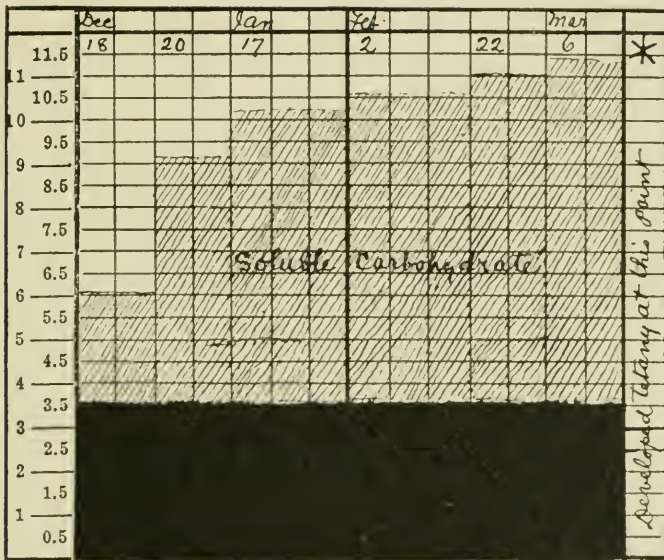 Dec Jan Feb Mar
18 20 17 2 22 6
11.5
11
10.5
10
9.5
9
8.5
8
7.5
7
6.5
6
5.5
5
4.5
4
3.5
3
2.5
2
1.5
1
0.5
Soluble Carbohydrate
Developed tetany at this point